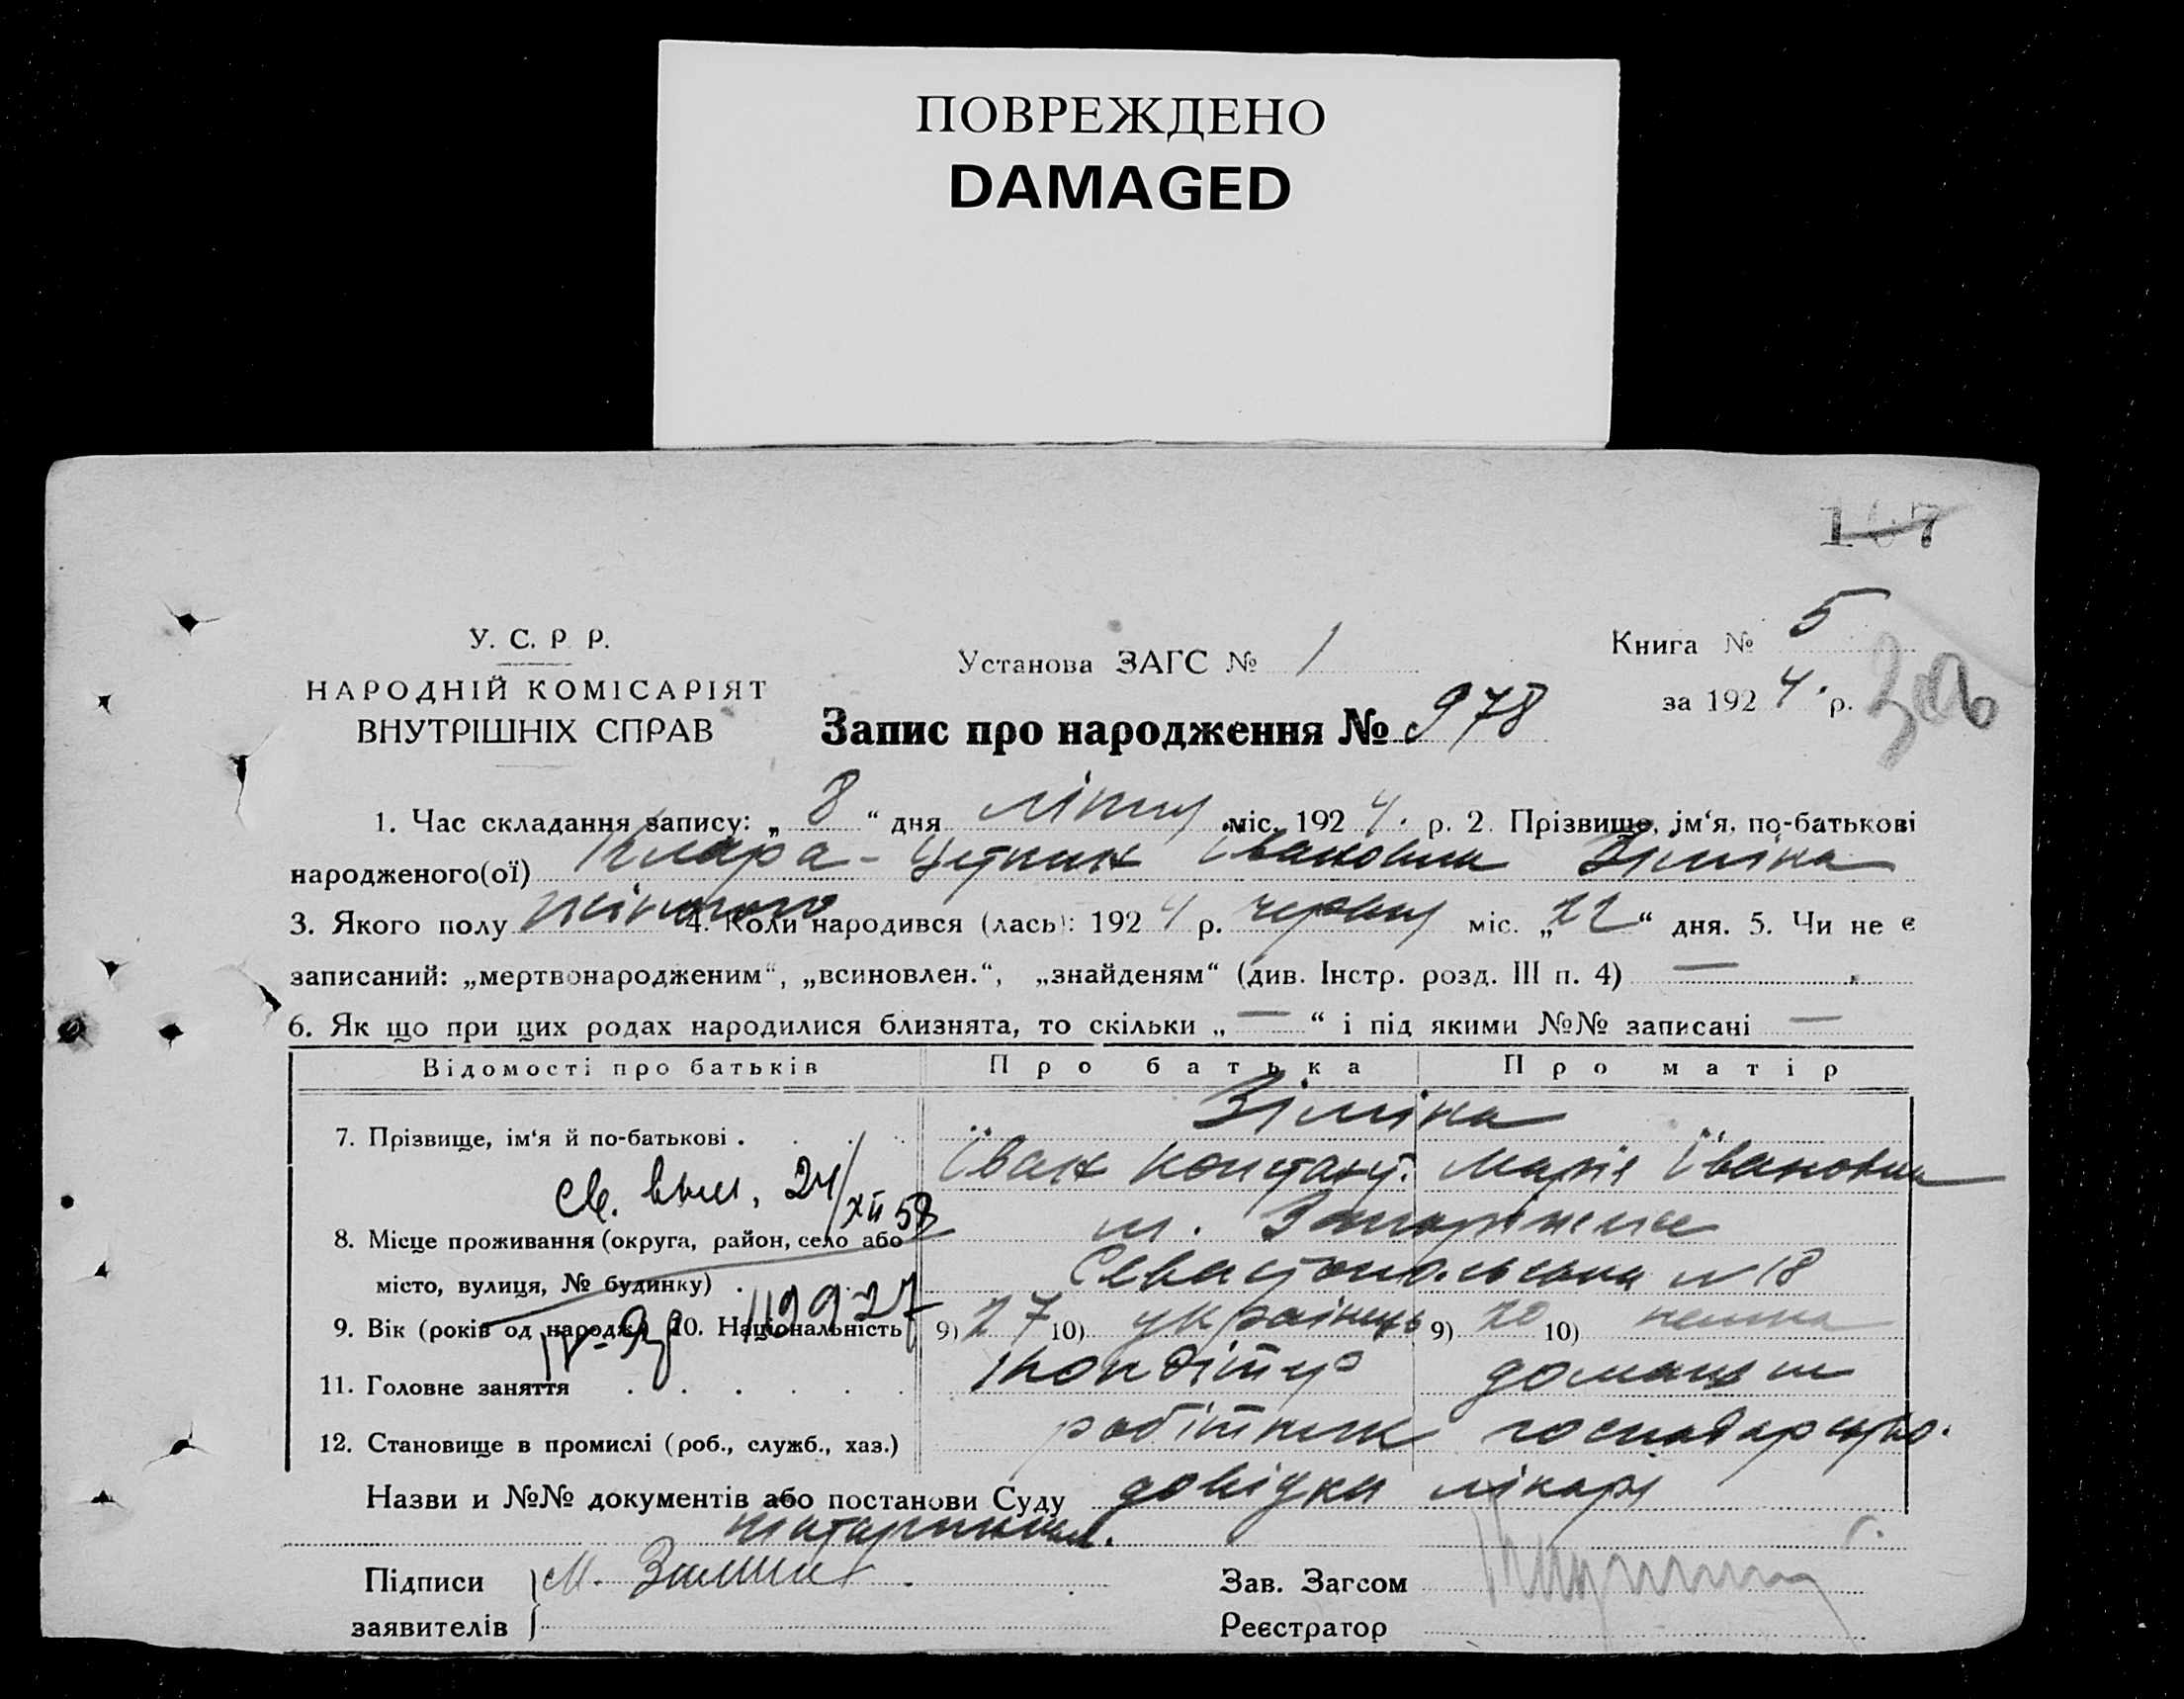 ПОВРЕЖДЕНО
DAMAGED
107
У. С. Р. Р.
НАРОДНІЙ КОМІСАРІЯТ
ВНУТРІШНІХ СПРАВ
Установа ЗАГС № 1
Книга № 5
за 1924 р.
Запис про народження № 978
1. Час складання запису: „ 8 “ дня липня міс. 1924. р. 2. Прізвище, ім‘я, по-батькові
народженого(ої) Клара - Цеткин Івановна Зіміна
3. Якого полу жіночого 4. Коли народився (лась): 1924 р. червня міс. „22“ дня. 5. Чи не є
записаний: „мертвонародженим“, „всиновлен.“, „знайденям“ (див. Інстр. розд. III п. 4) —
6. Як що при цих родах народилися близнята, то скільки „ — “ і під якими №№ записані —
Відомості про батьків Про батька Про матір
Зіміна
7. Прізвище, ім‘я й по-батькові . . . .
Іван Констант. Марія Івановна
св. выд. 24/XII 58
8. Місце проживання (округа, район, село або м. Запоріжжя
місто, вулиця, № будинку) . Севастопольська № 18
119927
9. Вік (років од народж.) 10. Національність 9) 27 10) українець 9) 20 10) немка
11. Головне заняття . . . . . . кондітер домашн
12. Становище в промислі (роб., служб., хаз.) робітник господарство.
Назви и №№ документів або постанови Суду довідка лікаря
Підписи М. Зимин Зав. Загсом
заявителів Реєстратор